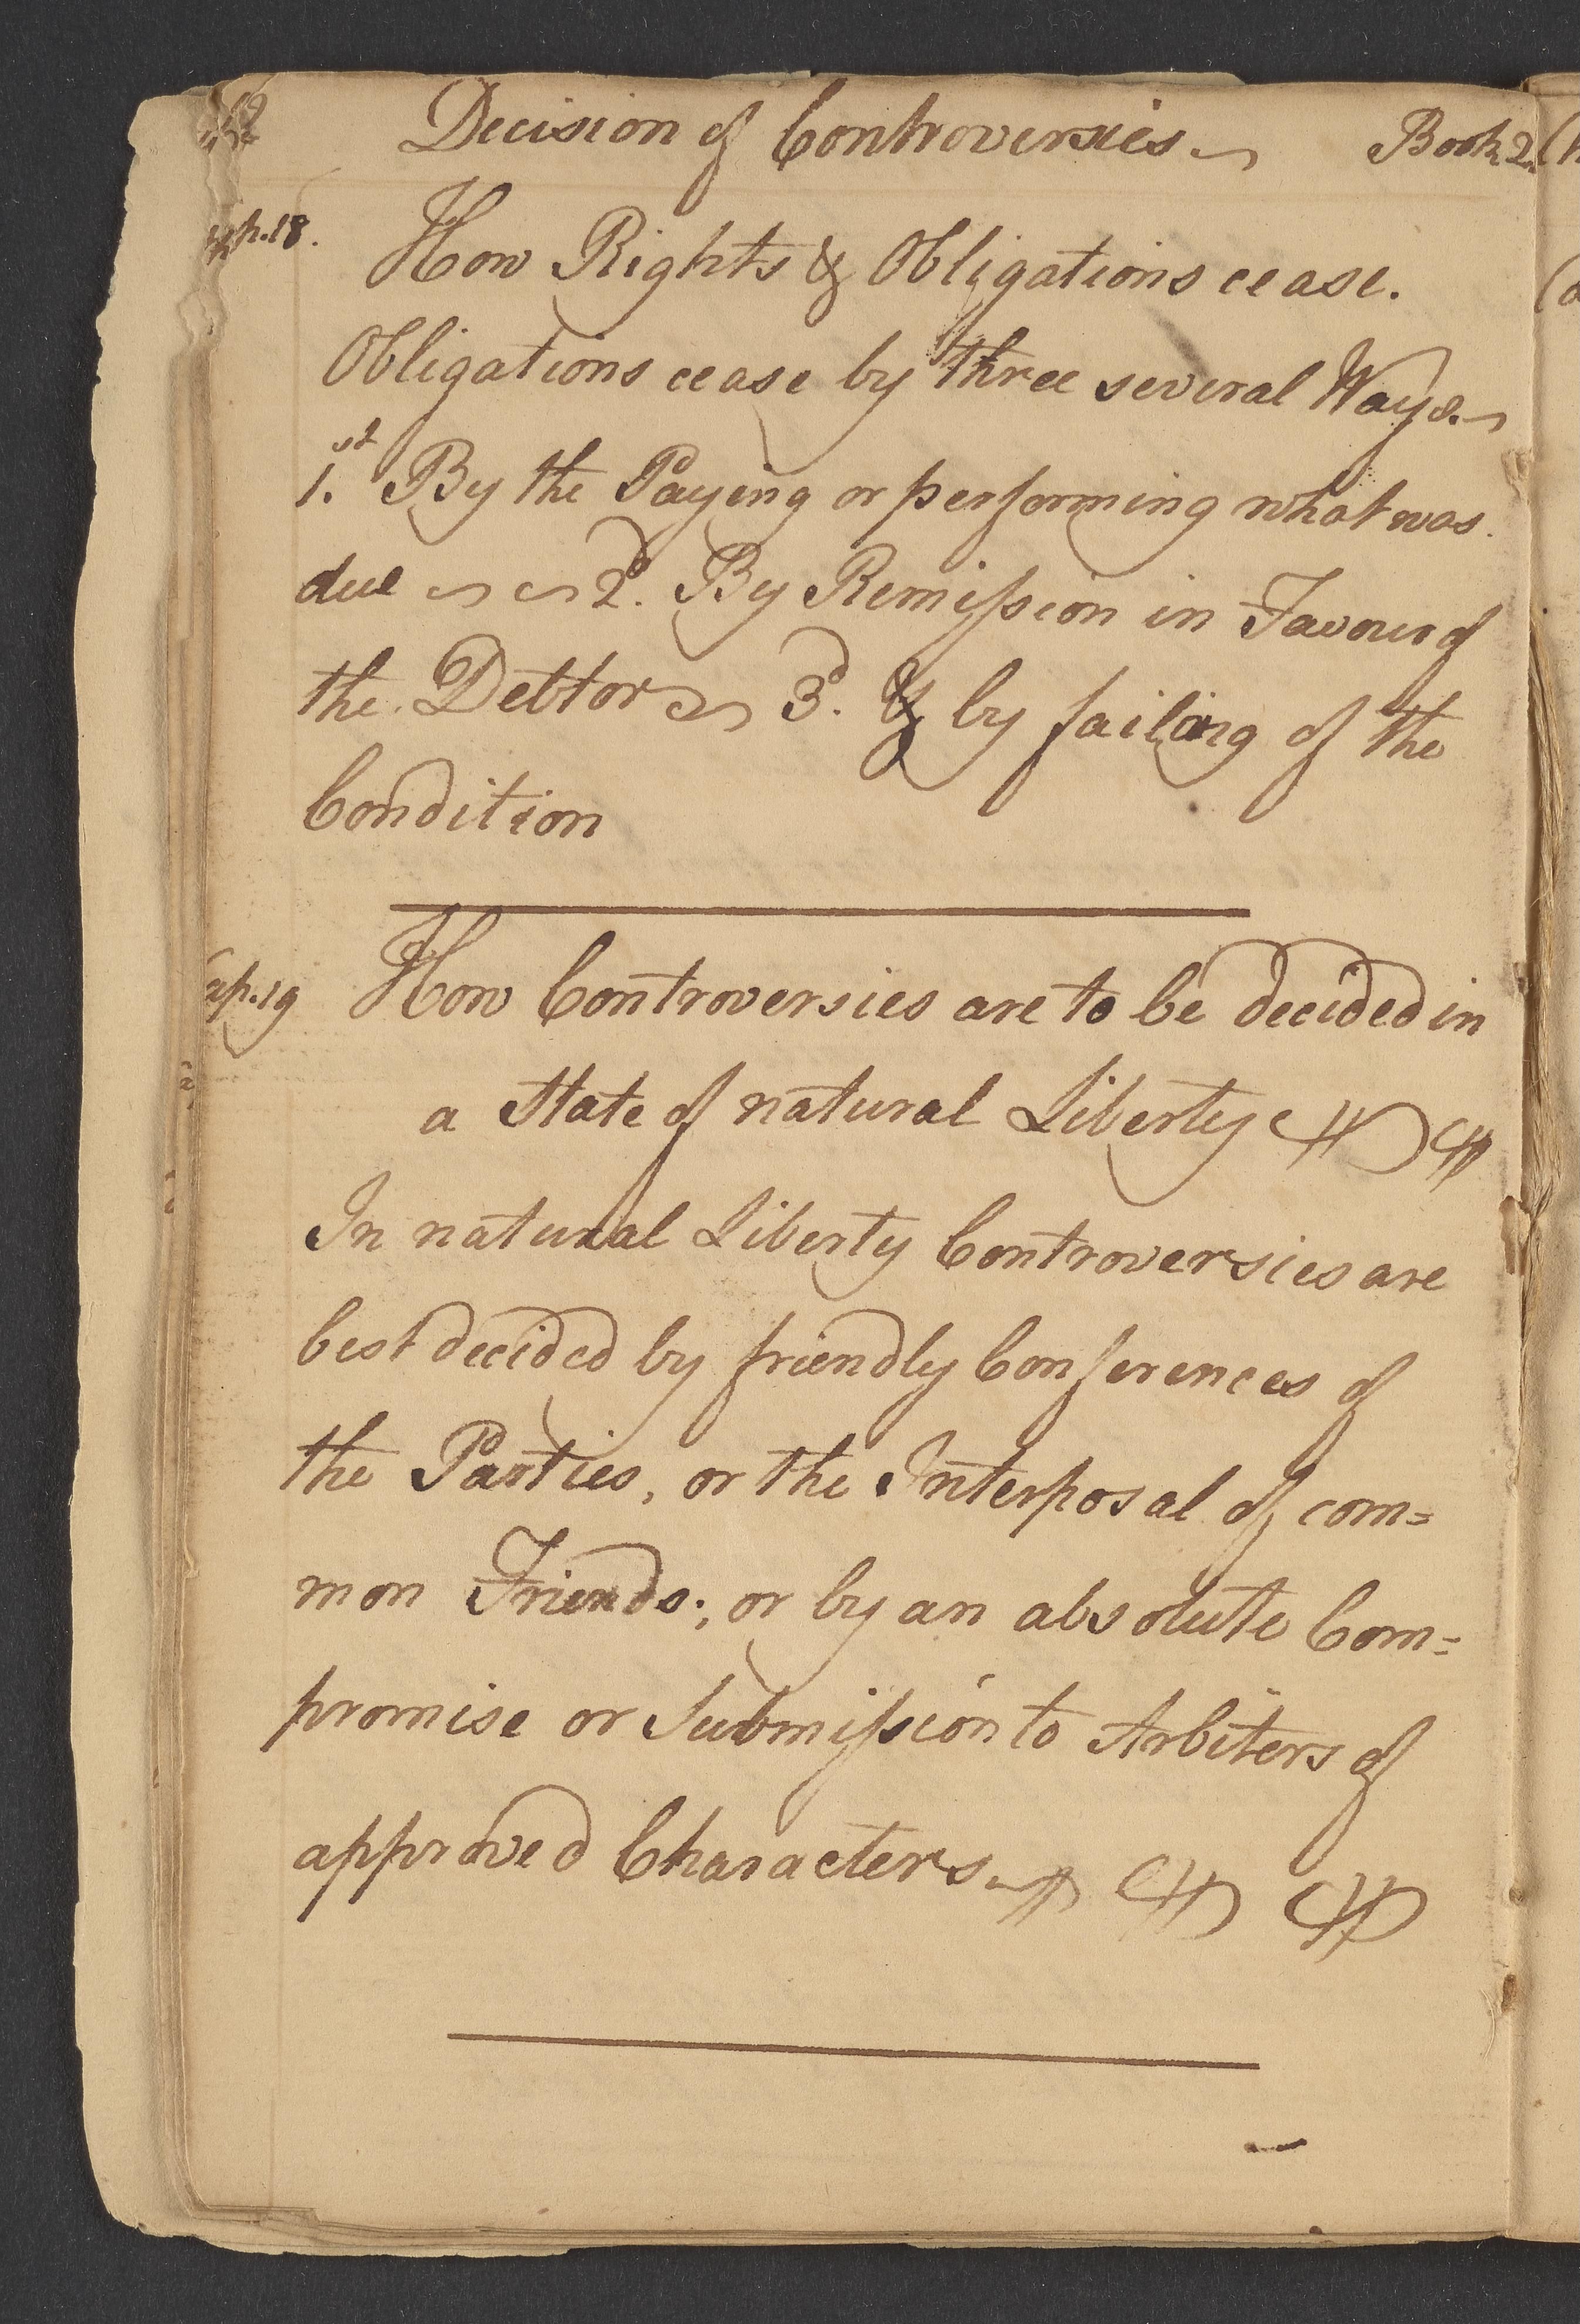 Decision of Controversies. Book 2.
ap. 18. How Rights & Obligations cease.
Obligations cease by three several Ways.
1.st By the Paying or performing what was
due 2d. By Remission in Favour of
the Debtor 3d. & by failing of the
Condition
Cap. 19 How Controversies are to be decided in
a State of natural Liberty
In natural Liberty Controversies are
best decided by friendly Conferences of
the Parties, or the Interposal of com=
mon Friends; or by an absolute Com=
promise or Submission to Arbiters of
approved Characters.